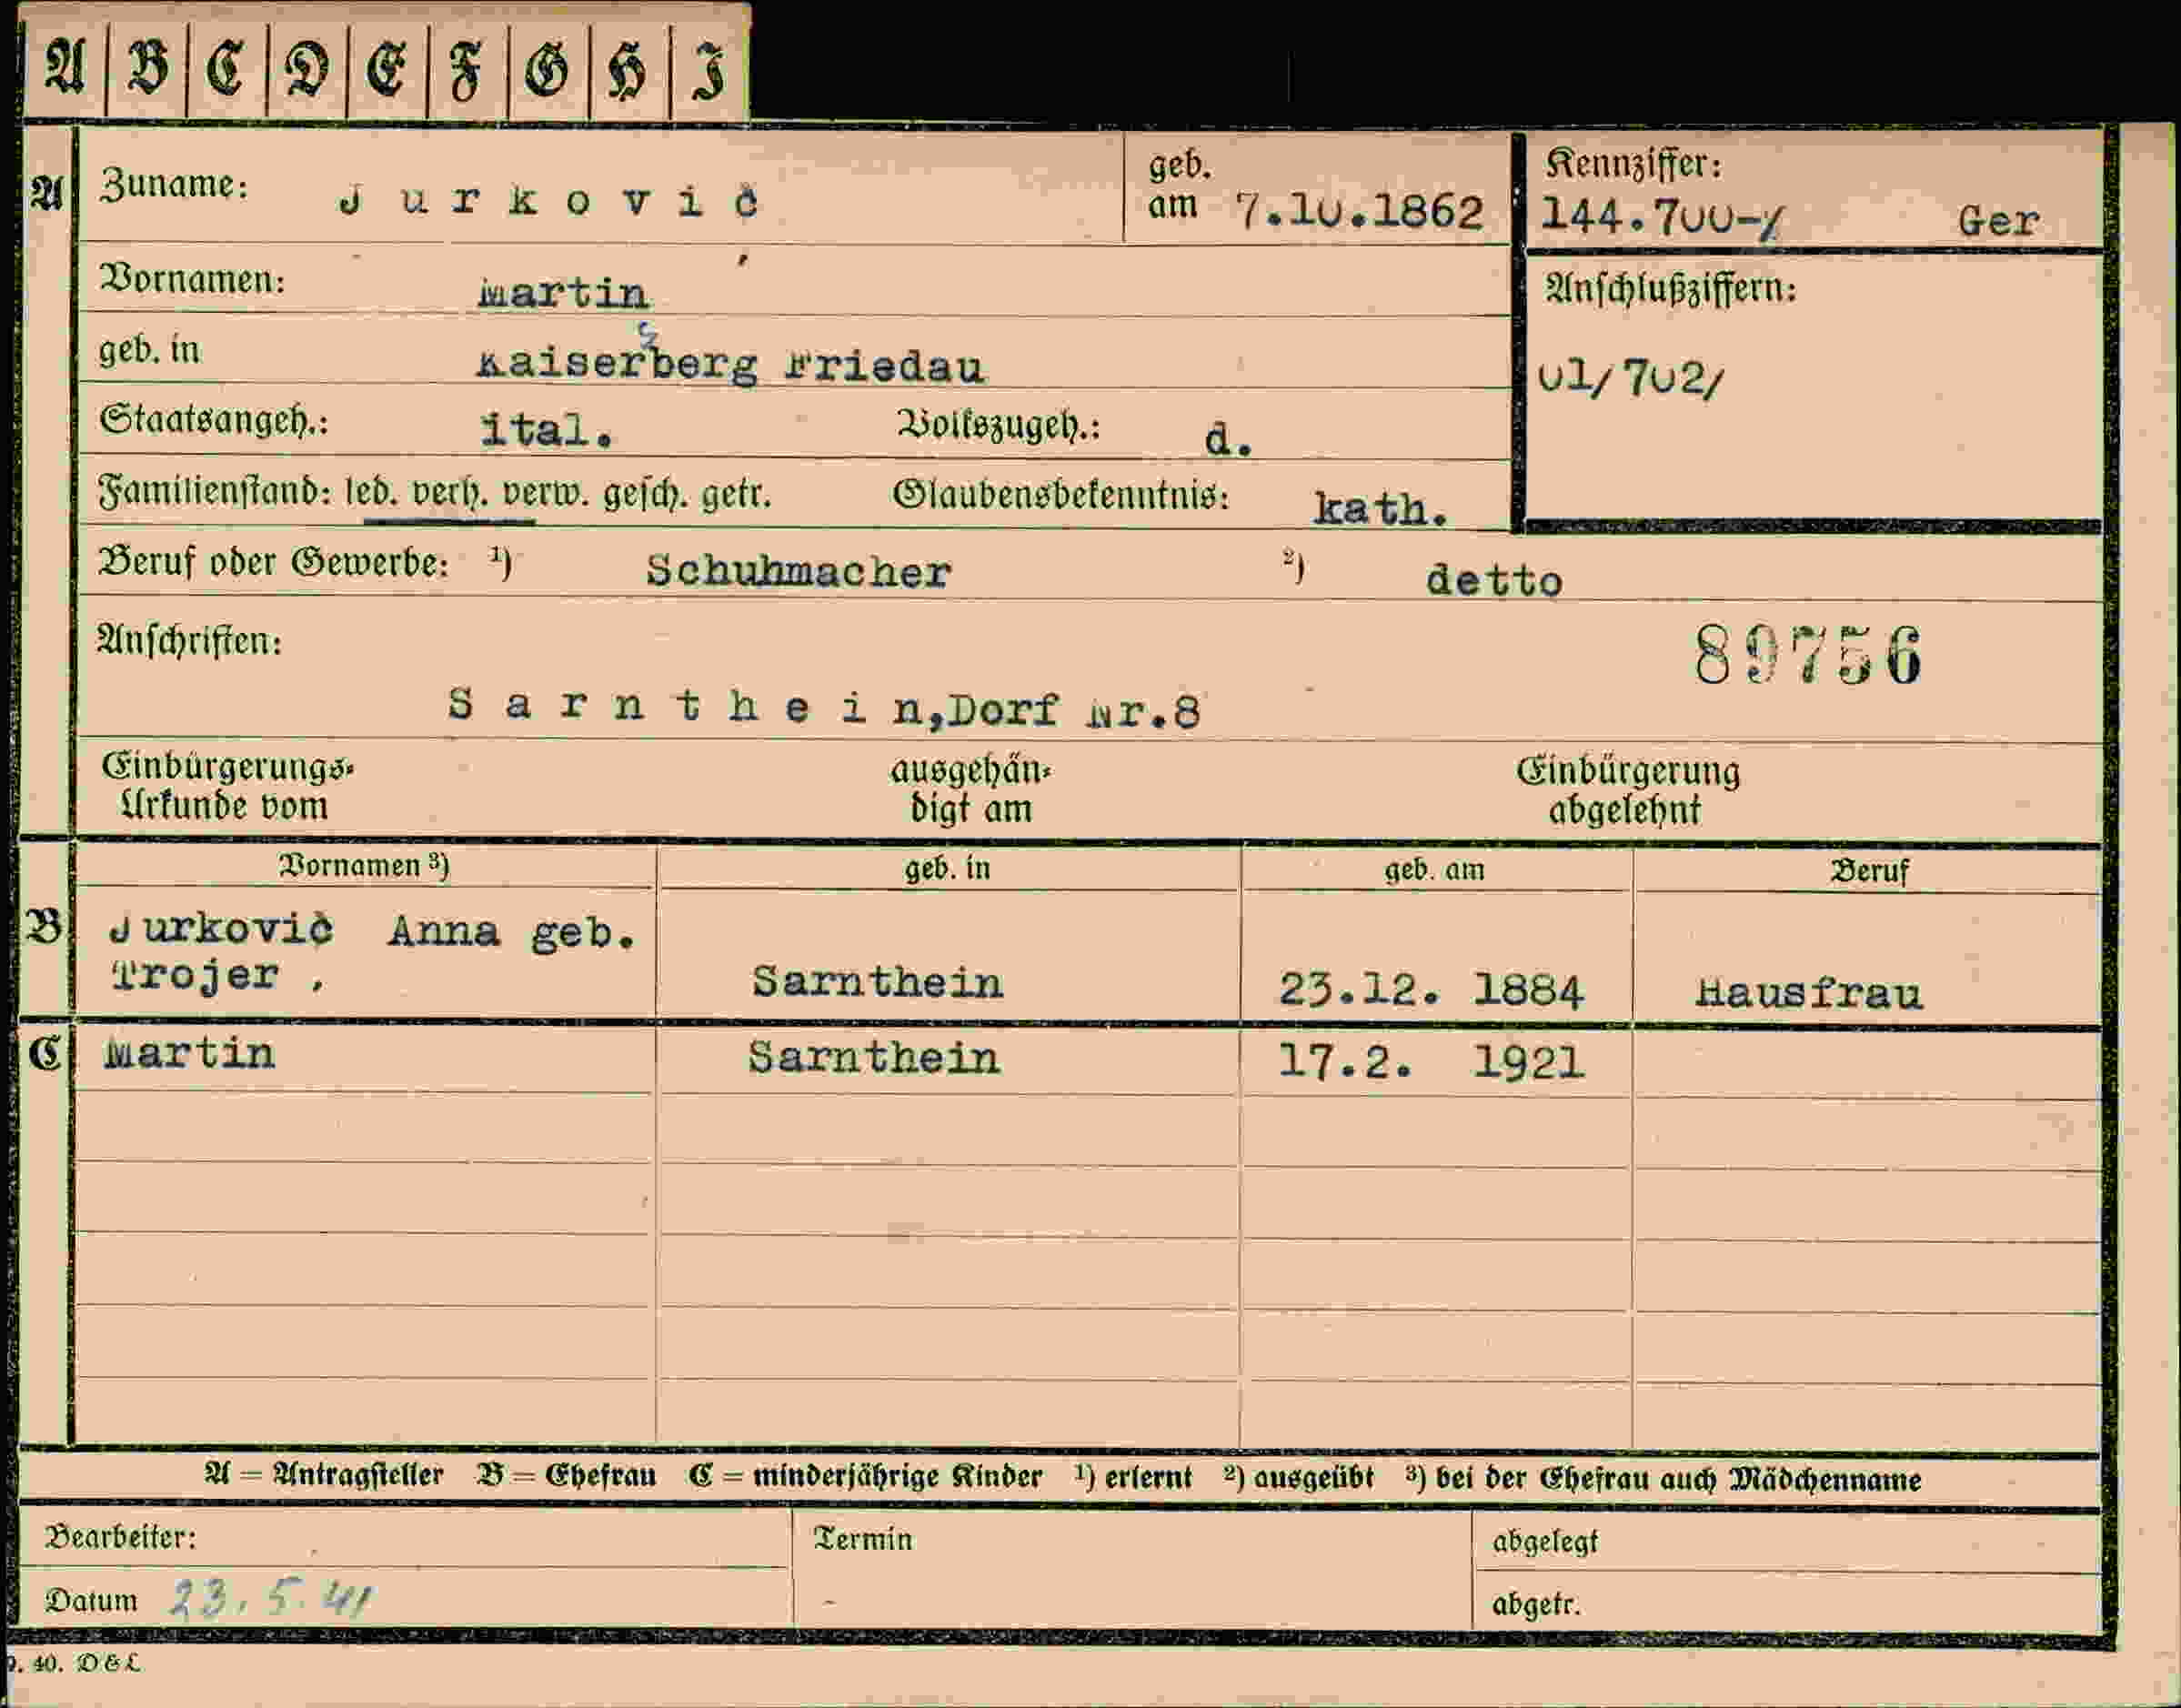 A B C D E F G H I
A Zuname: Jurkovič geb. am 7.10.1862 Kennziffer: 144.700-/ Ger
Vornamen: Martin Anschlußziffern:
geb. in Kaisersberg Friedau 01/702/
Staatsangeh.: ital. Volkszugeh.: d.
Familienstand: led. verh. verw. gesch. getr. Glaubensbekenntnis: kath.
Beruf oder Gewerbe: ¹) Schuhmacher ²) detto
Anschriften: 89756
Sarnthein, Dorf Nr.8
Einbürgerungs- ausgehän- Einbürgerung
Urkunde vom digt am abgelehnt
Vornamen ³) geb. in geb. am Beruf
B Jurkovič Anna geb.
Trojer, Sarnthein 23.12. 1884 Hausfrau
C Martin Sarnthein 17.2. 1921
A = Antragsteller B = Ehefrau C = minderjährige Kinder ¹) erlernt ²) ausgeübt ³) bei der Ehefrau auch Mädchenname
Bearbeiter: Termin abgelegt
Datum 23.5.41 abgetr.
40. D & L